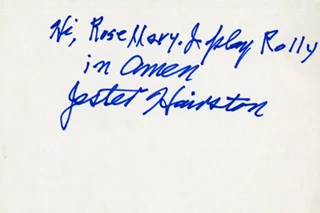 Hi, Rose Mary. I play Rolly
in Amen
Jester Hairston